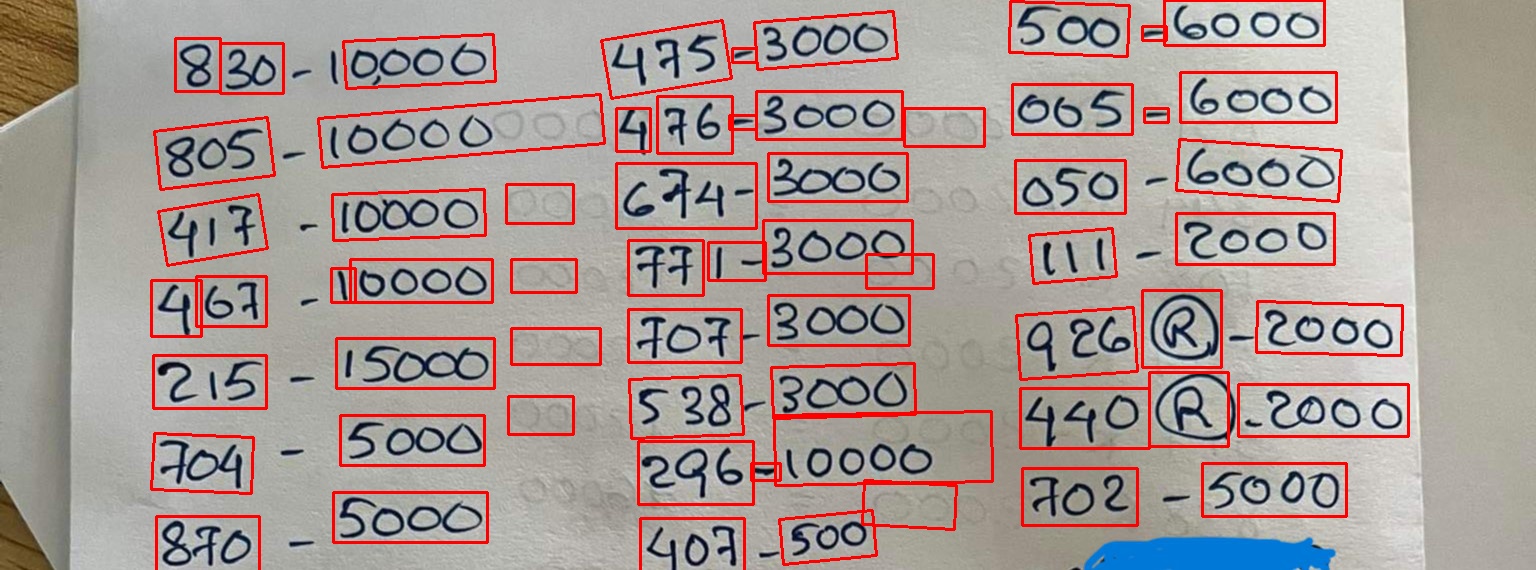 830 - 10,000
805 - 10000
417 - 10000
467 - 10000
215 - 15000
704 - 5000
870 - 5000
475 = 3000
476 = 3000
674 - 3000
771 - 3000
707 - 3000
538 - 3000
296 - 10000
407 - 500
500 = 6000
005 = 6000
050 - 6000
111 - 2000
926 Ⓡ - 2000
440 Ⓡ - 2000
702 - 5000